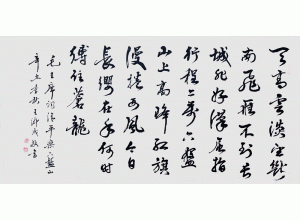 天高雲淡望斷
南飛雁不到长
城非好漢屈指
行程二萬六盤
山上高峰红旗
漫捲西風今日
長缨在手何时
縛住蒼龍
毛主席词清平樂六盤山
辛丑